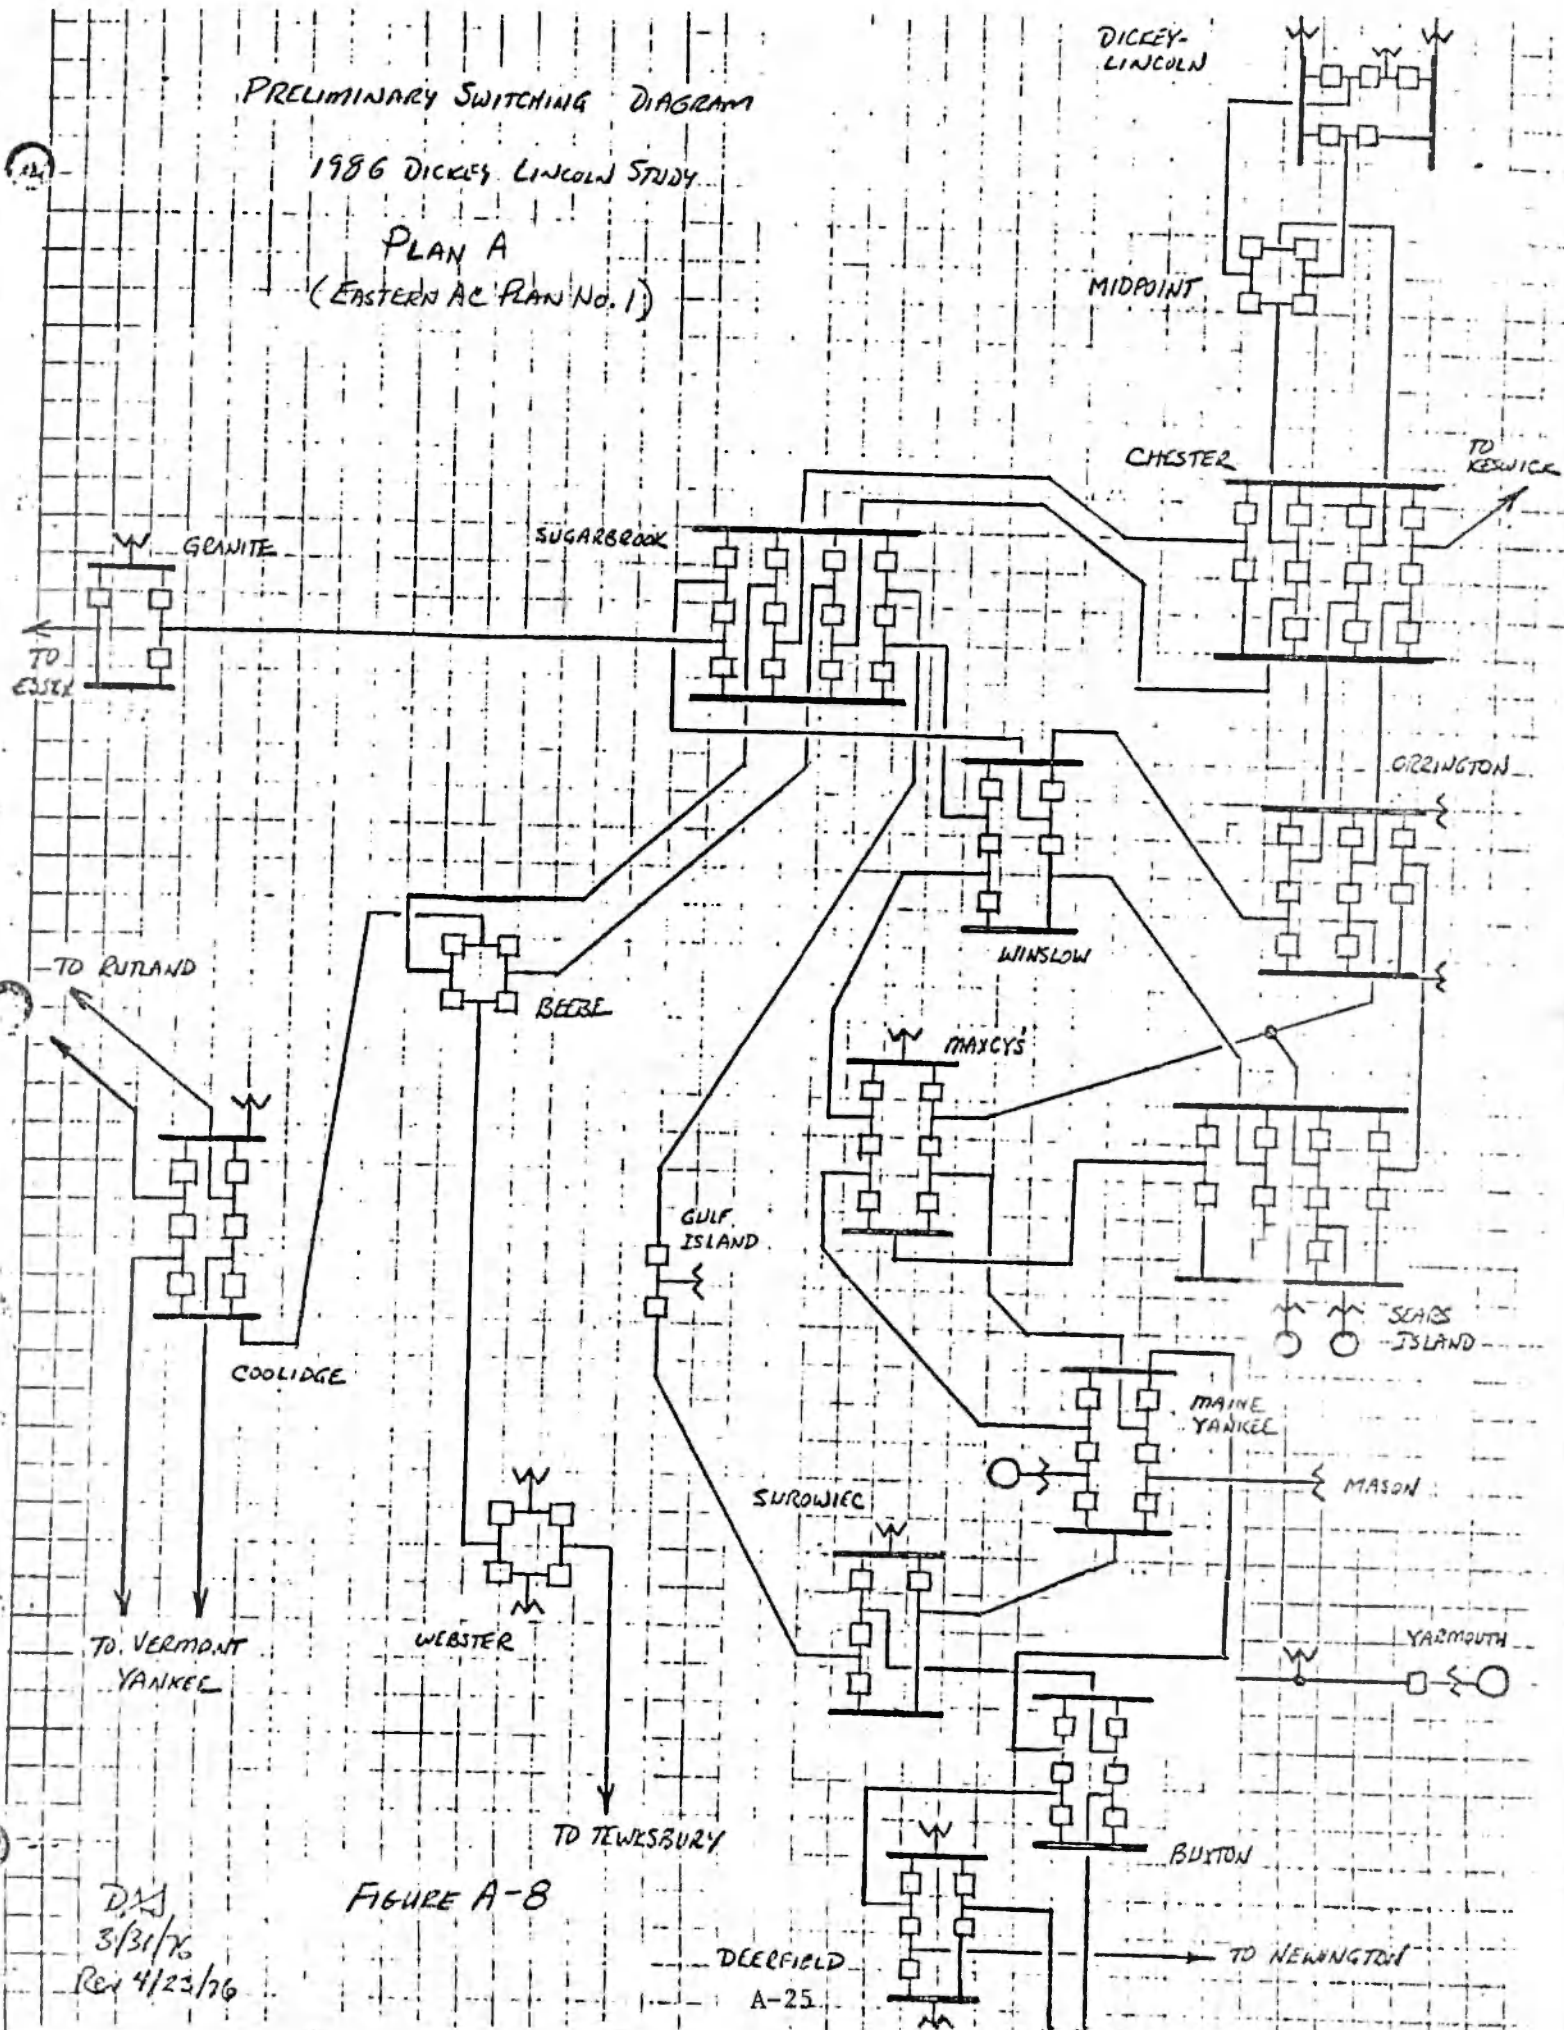 PRELIMINARY SWITCHING DIAGRAM
1986 DICKEY LINCOLN STUDY
PLAN A
(EASTERN AC PLAN NO. 1)
DICKEY-
LINCOLN
MIDPOINT
CHESTER
TO
KESWICK
SUGARBROOK
GRANITE
TO
ESSEX
ORRINGTON
WINSLOW
TO RUTLAND
BEEBE
MAXCYS
GULF
ISLAND
SEARS
ISLAND
COOLIDGE
MAINE
YANKEE
MASON
SUROWIEC
TO VERMONT
YANKEE
WEBSTER
YARMOUTH
TO TEWKSBURY
BUXTON
FIGURE A-8
3/31/76
Rev 4/23/76
DEERFIELD
TO NEWINGTON
A-25